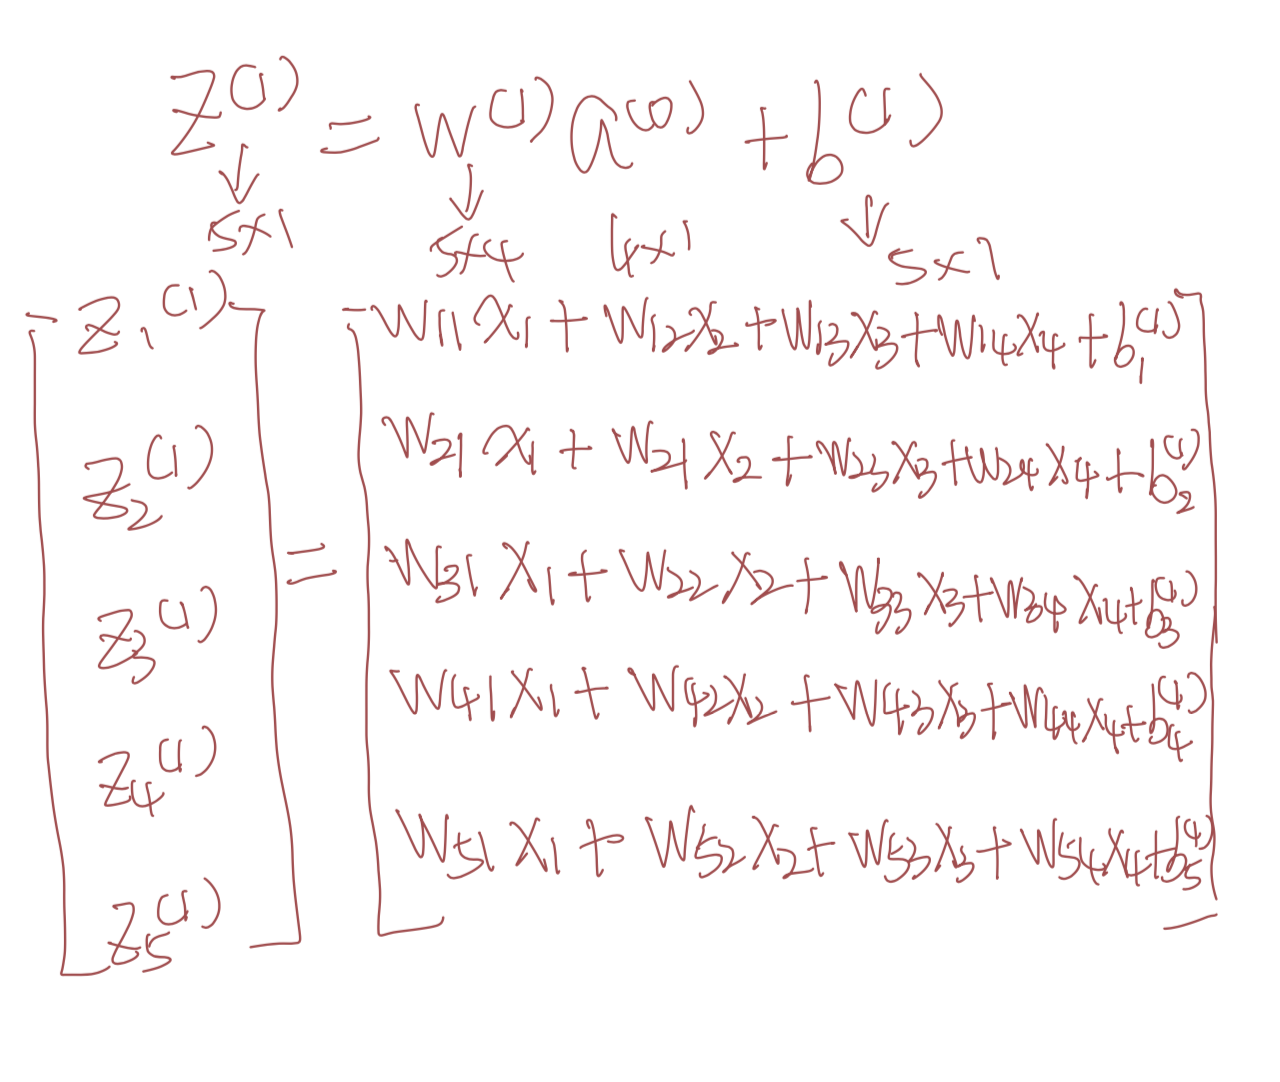 Z^(1) = W^(1) a^(0) + b^(1)
↓ ↓ ↓
5×1 5×4 4×1 5×1
[ z₁^(1) ] [ W₁₁x₁ + W₁₂x₂ + W₁₃x₃ + W₁₄x₄ + b₁^(1) ]
z₂^(1) W₂₁x₁ + W₂₁x₂ + W₂₃x₃ + W₂₄x₄ + b₂^(1)
z₃^(1) = W₃₁x₁ + W₂₂x₂ + W₃₃x₃ + W₃₄x₄ + b₃^(1)
z₄^(1) W₄₁x₁ + W₄₂x₂ + W₄₃x₃ + W₄₄x₄ + b₄^(1)
z₅^(1) W₅₁x₁ + W₅₂x₂ + W₅₃x₃ + W₅₄x₄ + b₅^(1)